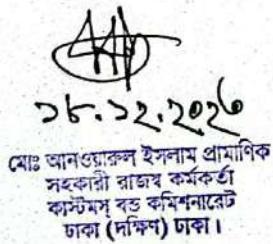 ১৮.১২.২০২৩
মোঃ আনওয়ারুল ইসলাম প্রামাণিক
সহকারী রাজস্ব কর্মকর্তা
কাস্টমস্ বন্ড কমিশনারেট
ঢাকা (দক্ষিণ) ঢাকা।